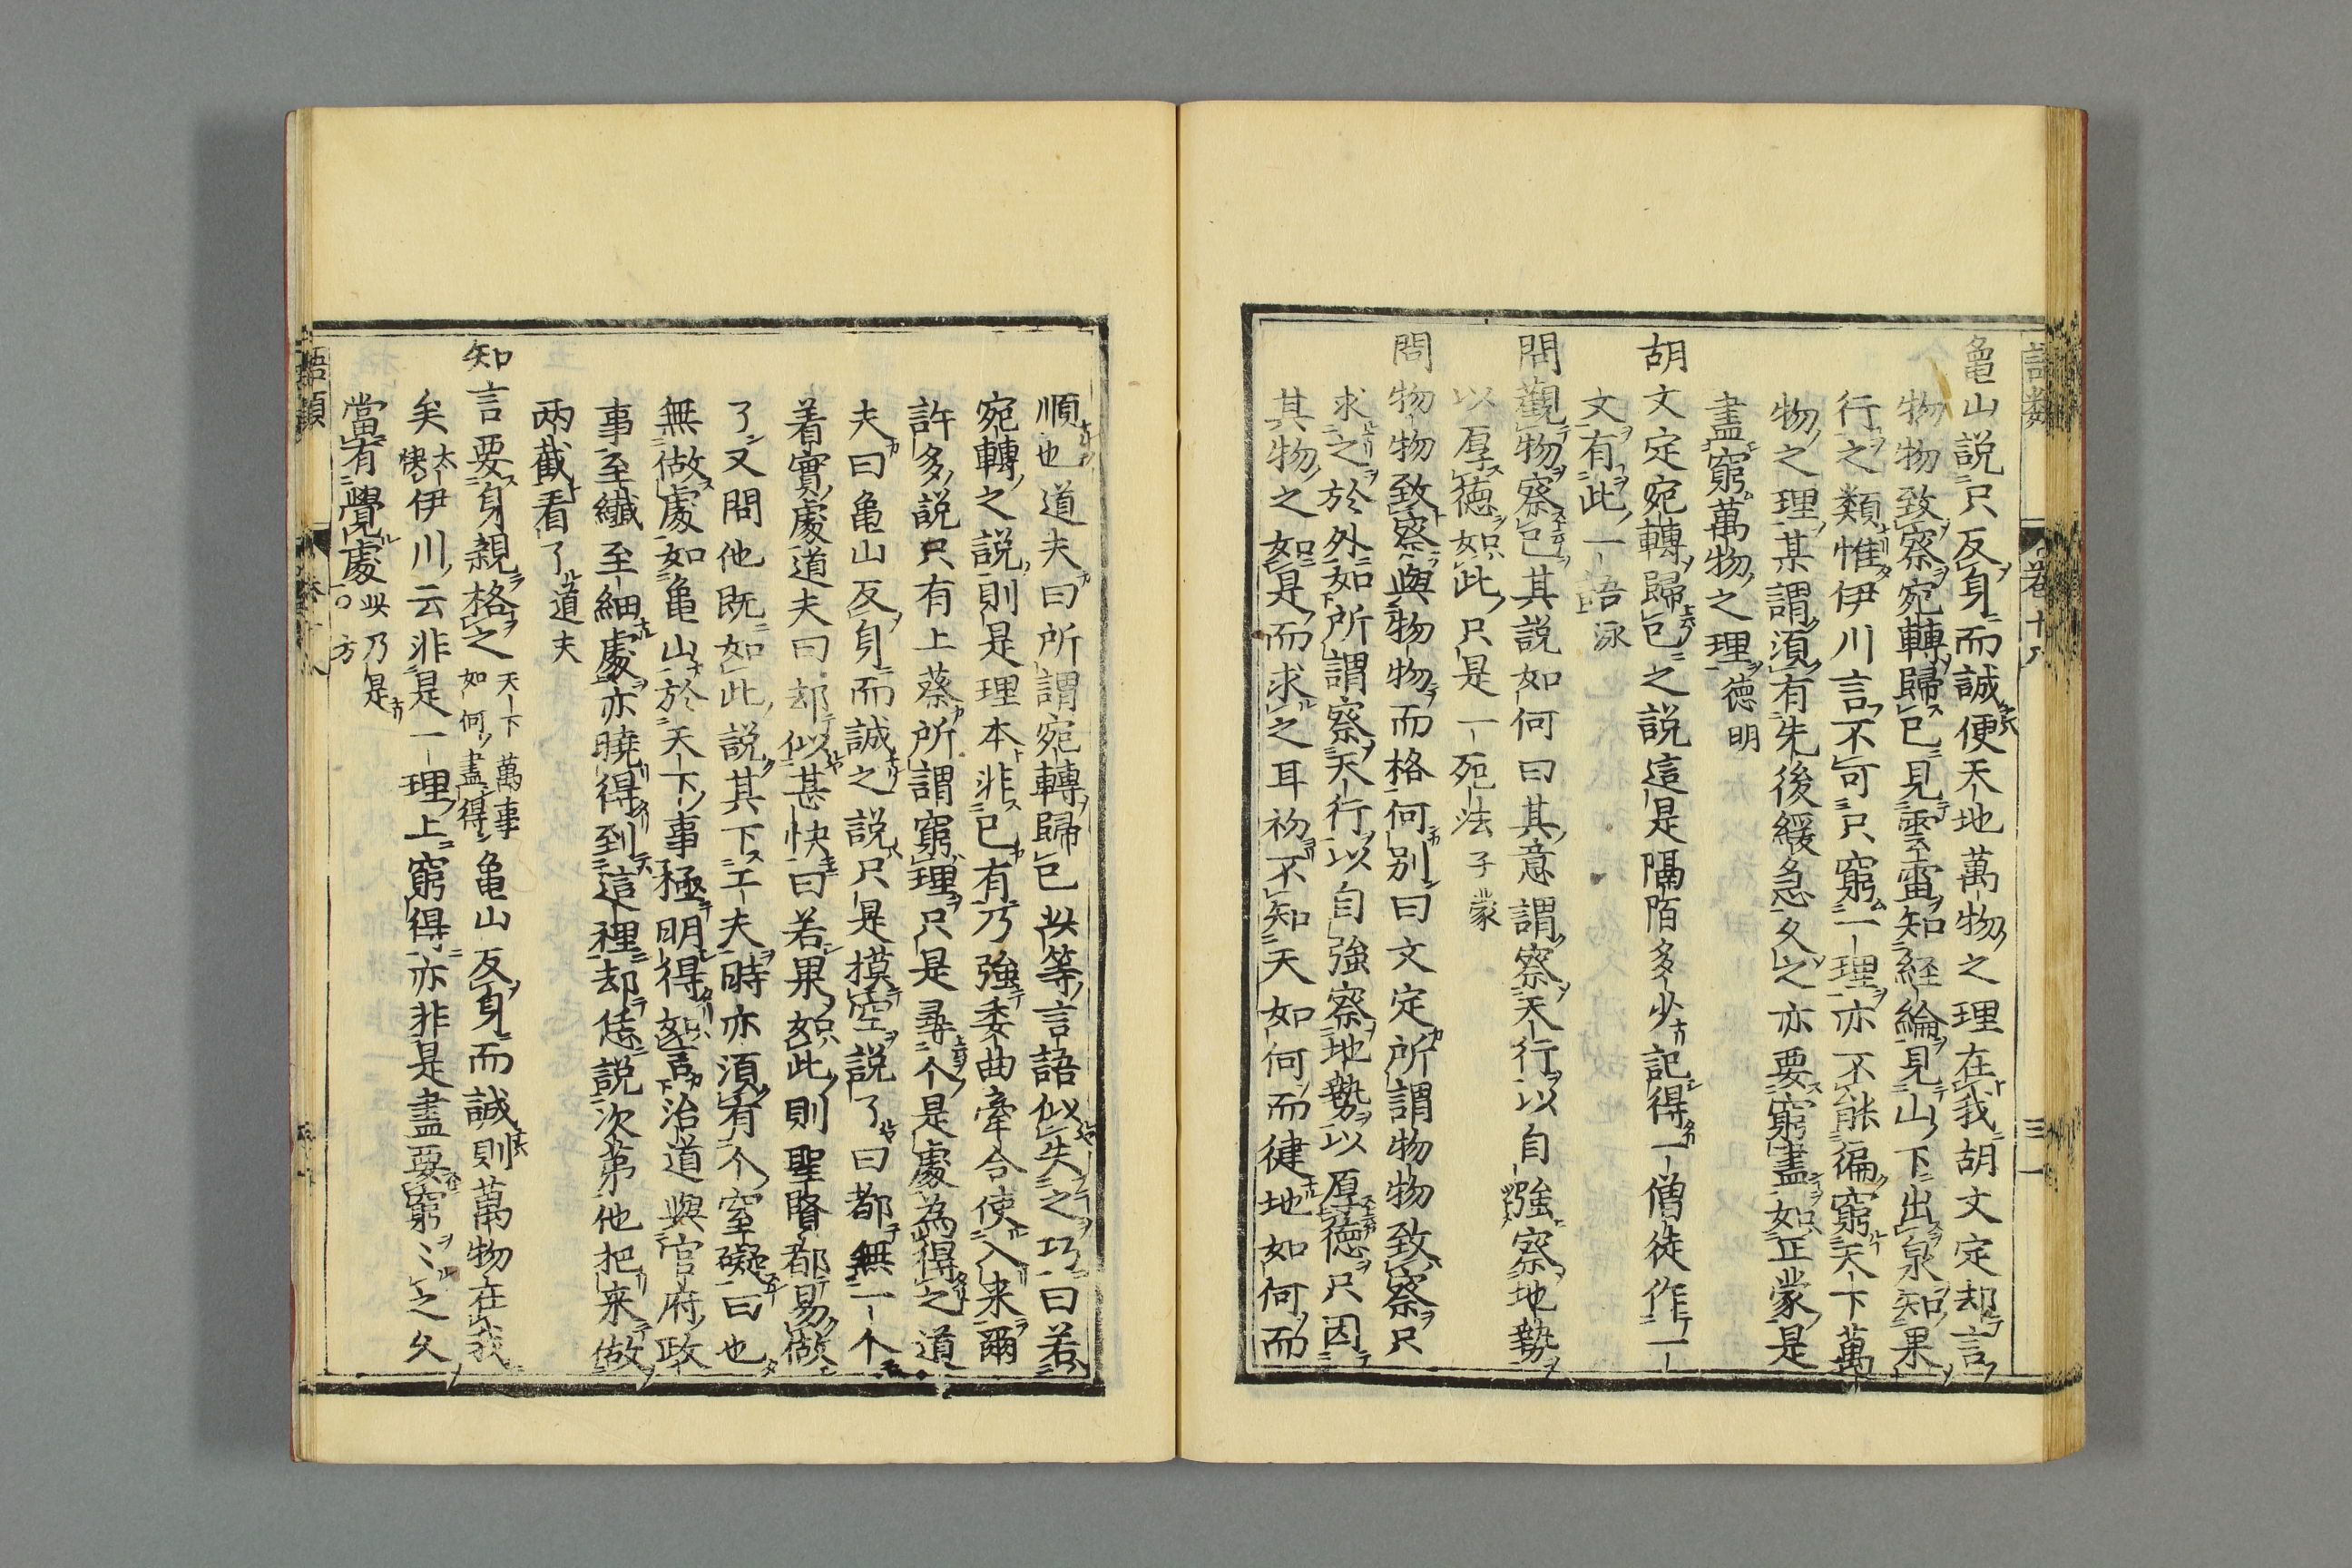 語類 卷十八 三一
亀山説只反身而誠便天地萬物之理在我胡文定却言
物物致察宛轉歸已見雲雷知經綸見山下出泉知果
行之類惟伊川言不可只窮一理亦不能徧窮天下萬
物之理某謂須有先後緩急久之亦要窮盡如正蒙是
盡窮萬物之理德明
胡文定宛轉歸已之説這是隔陌多少記得一僧徒作一
文有此一語泳
問觀物察已其説如何曰其意謂察天行以自強察地勢
以厚德如此只是一死法子蒙
問物物致察與物物而格何別曰文定所謂物物致察只
求之於外如所謂察天行以自強察地勢以厚德只因
其物之如是而求之耳初不知天如何而健地如何而
順也道夫曰所謂宛轉歸已此等言語似失之巧曰若
宛轉之説則是理本非已有乃強委曲牽合使入来爾
許多説只有上蔡所謂窮理只是尋个是處為得之道
夫曰亀山反身而誠之説只是摸空説了曰都無一个
着實處道夫曰却似甚快曰若果如此則聖賢都易做
了又問他既如此説其下工夫時亦須有个窒礙曰也
無做處如亀山於天下事極明得如言治道與官府政
事至纖至細處亦曉得到這裡却恁説次第他把来做
兩截看了道夫
知言要身親格之天下萬事如何盡得亀山反身而誠則萬物在我
矣太快伊川云非是一理上窮得亦非是盡要窮〻之久
當有覺處此乃是〇方
語類